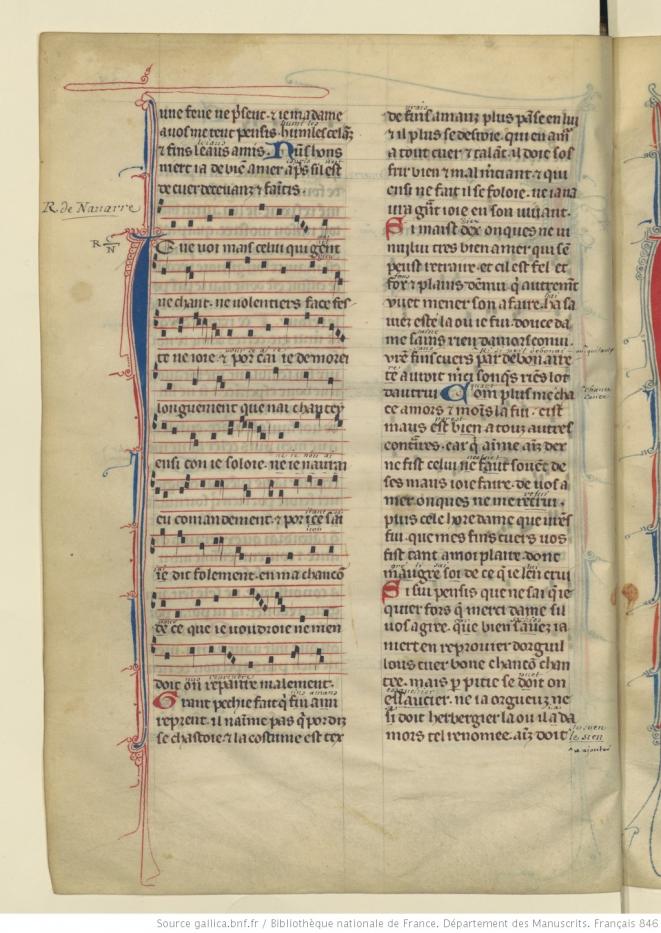 R. de Navarre
R C/N
une feue ne psent · τ ie madame
a uos me rent pensis · humles celãz
τ fins leaus amis · Nus hons
mert ia de biẽ amer aps sil est
de cuer deceuanz τ faintis ·
Cue uoi mais celui qui gent
ne chant · ne uolentiers face fes
te ne ioie · τ por cai ie demore
longuement que nai chante
ensi con ie soloie · ne ie naurai
eu comandement · τ por ice sai
ie dit folement · en ma chancõ
de ce que ie uoudroie ne men
doit on repairre malement ·
Grant pechie fait q̃ fin ami
reprent · il naime pas q̃ por diz
se chastoie · τ la costume est tex
de fins amanz plus pãse en lui
τ il plus se desuoie · qui en amr̃
a tout cuer τ talãt · il doie sof
frir bien τ mal · niciant τ qui
ensi ne fait il se foloie · ne ia na
ura grãt ioie en son uiuant ·
Si maist dex onques ne ui
nului tres bien amer qui sẽ
peust retraire · et cil est fel · et
fox τ plains denui q̃ autremẽt
uuet mener son afaire · ha sa
uiez este la ou ie fui · douce da
me sains rien damors conui ·
urẽ fins cuers par debonaire
te auroit merci sonq̃s riẽs lot
dautrui · Com plus me cha
ce amors τ moĩs la fui · cist
maus est bien a touz autres
contraires · car q̃ aime aĩz dex
ne fist celui ne faut souẽt de
ses maus ioie faire · de uos a
mer onques ne me recrui ·
puis cele hore dame que ures
fui · que mes fins cuers uos
fist tant amoi plaire · dont
maugre soi de ce q̃ ie len crui
Si sui pensis que ne sai q̃ ie
quier · fors q̃ merci dame sil
uos agree · que bien sauez ia
niert en reprouier dorguil
lous cuer bone chancõ chan
tee · mais p pitie se doit on
essaucier · ne ia orgueuz ne
si doit herbergier la ou il a da
mors tel renomee · aĩz doit
Source gallica.bnf.fr / Bibliothèque nationale de France. Département des Manuscrits. Français 846